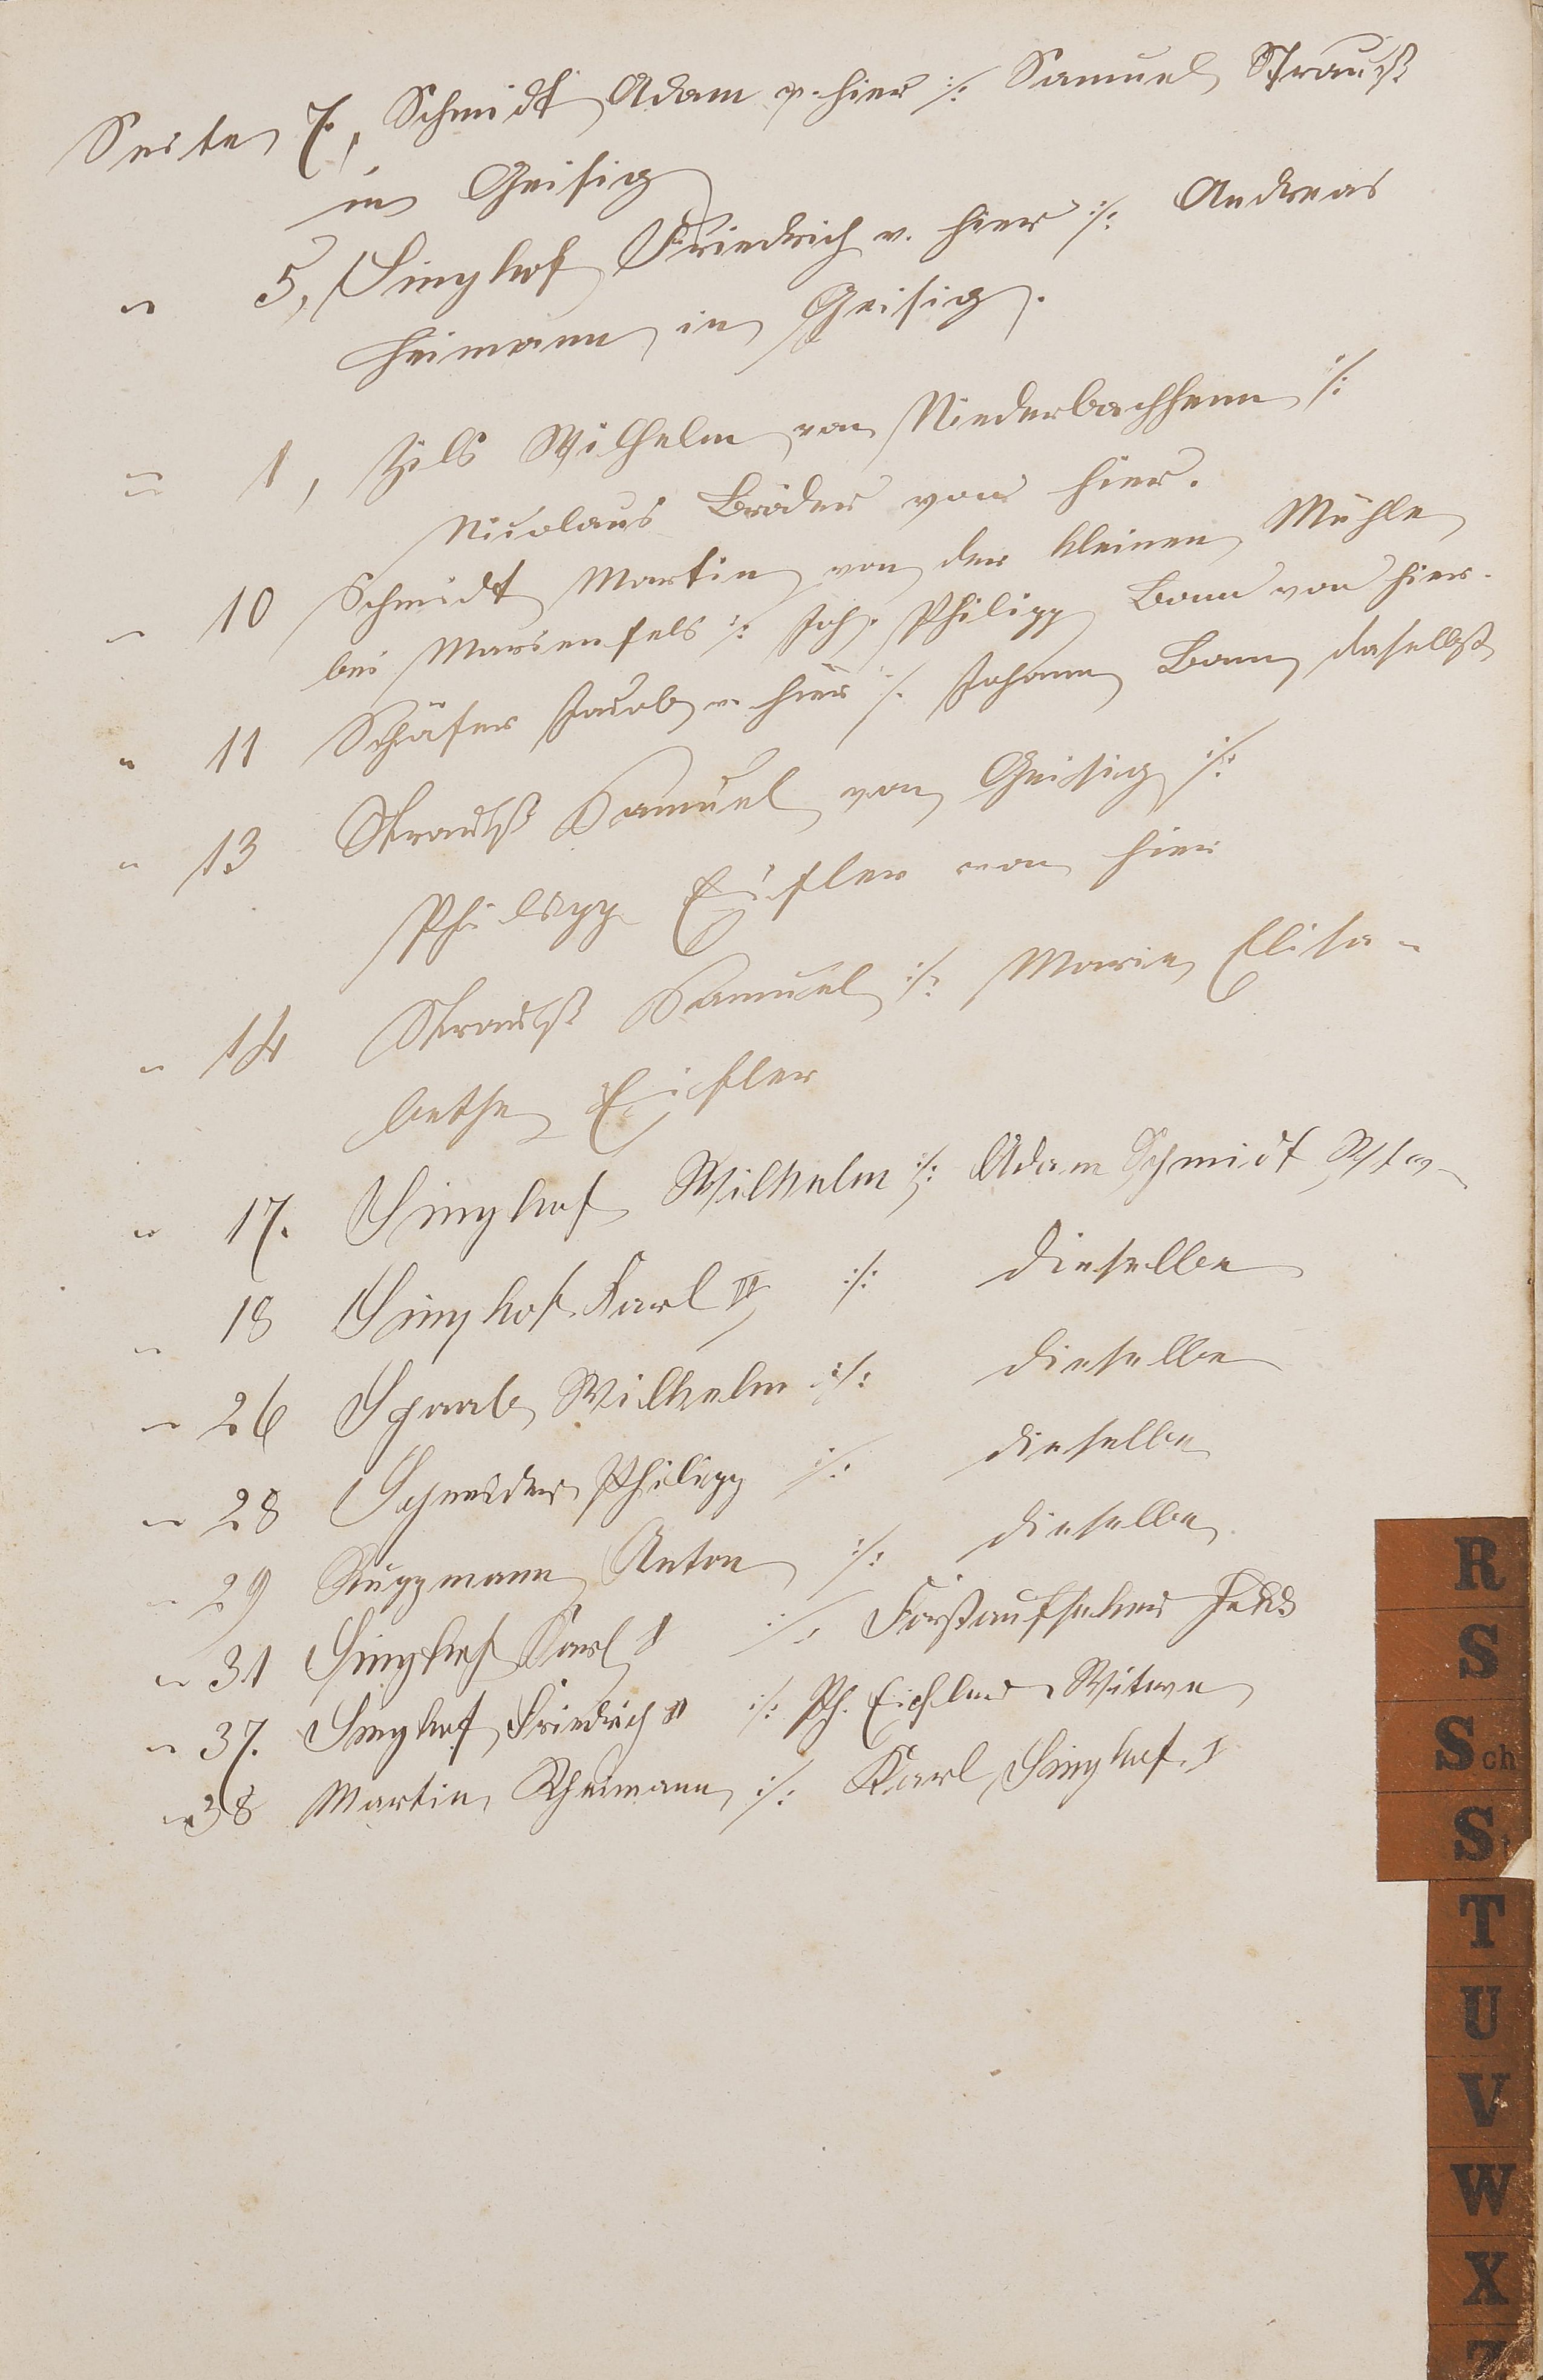 Seite 7, Schmidt Adam v. hier ·/· Samuel Strauß
in Geisig
" 5, Singhof Friedrich v. hier ·/· Andreas
Heimann in Geisig.
" 1, Wilhelm von Niederbachheim ·/·
Nicolaus Bröder von hier.
" 10 Schmidt Martin von der kleinen Mühle
bei Marienfels ·/· Joh. Philipp Bonn von hier.
" 11 Schäfer Jacob v. hier ·/· Johann Bonn daselbst
" 13 Strauß Samuel von Geisig ·/·
Philipp Eißler von hier
" 14 Strauß Samuel ·/· Marie Elisa-
bethe Eißler
" 17. Singhof Wilhelm ·/· Adam Schmidt Wtw.
" 18 Singhof Karl II ·/· dieselbe
" 26 Wilhelm ·/· dieselbe
" 28 Schneider Philipp ·/· dieselbe
" 29 Ruppmann Anton ·/· dieselbe
" 31 Singhof Karl I ·/· Forstaufseher
" 37. Singhof Friedrich II ·/· Ph. Eißler Witwe
" 38 Martin Heimann ·/· Karl Singhof I
R
S
Sch
St
T
U
V
W
X
Z